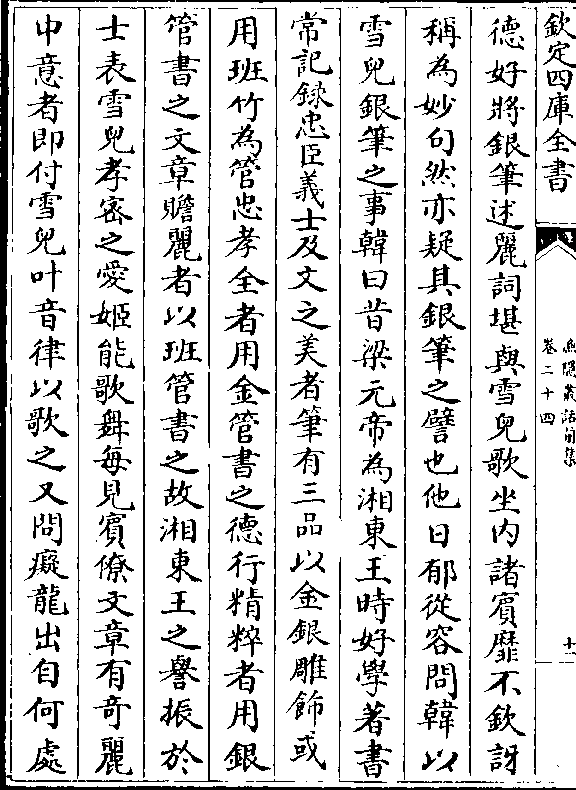 欽定四庫全書
漁隱叢話前集
卷二十四
十一
德好將銀筆述麗詞堪與雪兒歌坐内諸賓靡不欽訝
稱為妙句然亦疑其銀筆之譬也他日郁從容問韓以
雪兒銀筆之事韓曰昔梁元帝為湘東王時好學著書
常記錄忠臣義士及文之美者筆有三品以金銀雕飾或
用班竹為管忠孝全者用金管書之德行精粹者用銀
管書之文章贍麗者以班管書之故湘東王之譽振於
士表雪兒孝密之愛姬能歌舞每見賓僚文章有奇麗
中意者即付雪兒叶音律以歌之又問癡龍出自何處